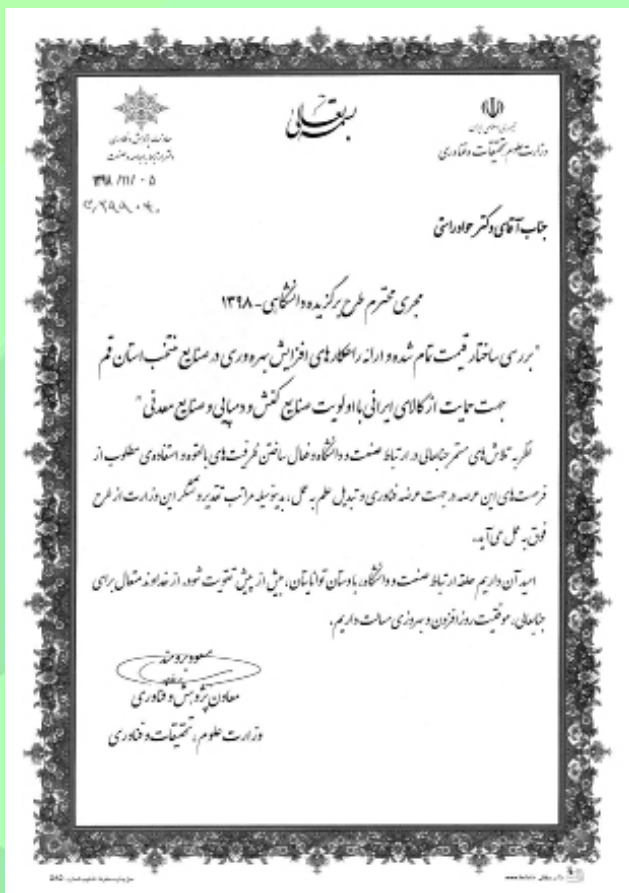 بسمه تعالی
جمهوری اسلامی ایران
وزارت علوم تحقیقات و فناوری
معاونت پژوهش و فناوری
دفتر ارتباط با جامعه و صنعت
۱۳۹۸/۱۱/۰۵
جناب آقای دکتر جواد راستی
مجری محترم طرح برگزیده دانشگاهی - ۱۳۹۸
"بررسی ساختار قیمت تمام شده و ارائه راهکارهای افزایش بهره وری در صنایع منتخب استان قم
جهت حمایت از کالای ایرانی با اولویت صنایع کفش و دمپایی و صنایع معدنی"
نظر به تلاش های مستمر جنابعالی در ارتباط صنعت و دانشگاه و فعال ساختن ظرفیت های بالقوه و استفاده ی مطلوب از
فرصت های این عرصه در جهت عرضه فناوری و تبدیل علم به عمل، بدینوسیله مراتب تقدیر و تشکر این وزارت از طرح
فوق به عمل می آید.
امید آن داریم حلقه ارتباط صنعت و دانشگاه، با دستان توانایتان، بیش از پیش تقویت شود. از خداوند متعال برای
جنابعالی، موفقیت روزافزون و بهروزی مسالت داریم.
مسعود برومند
معاون پژوهش و فناوری
وزارت علوم، تحقیقات و فناوری